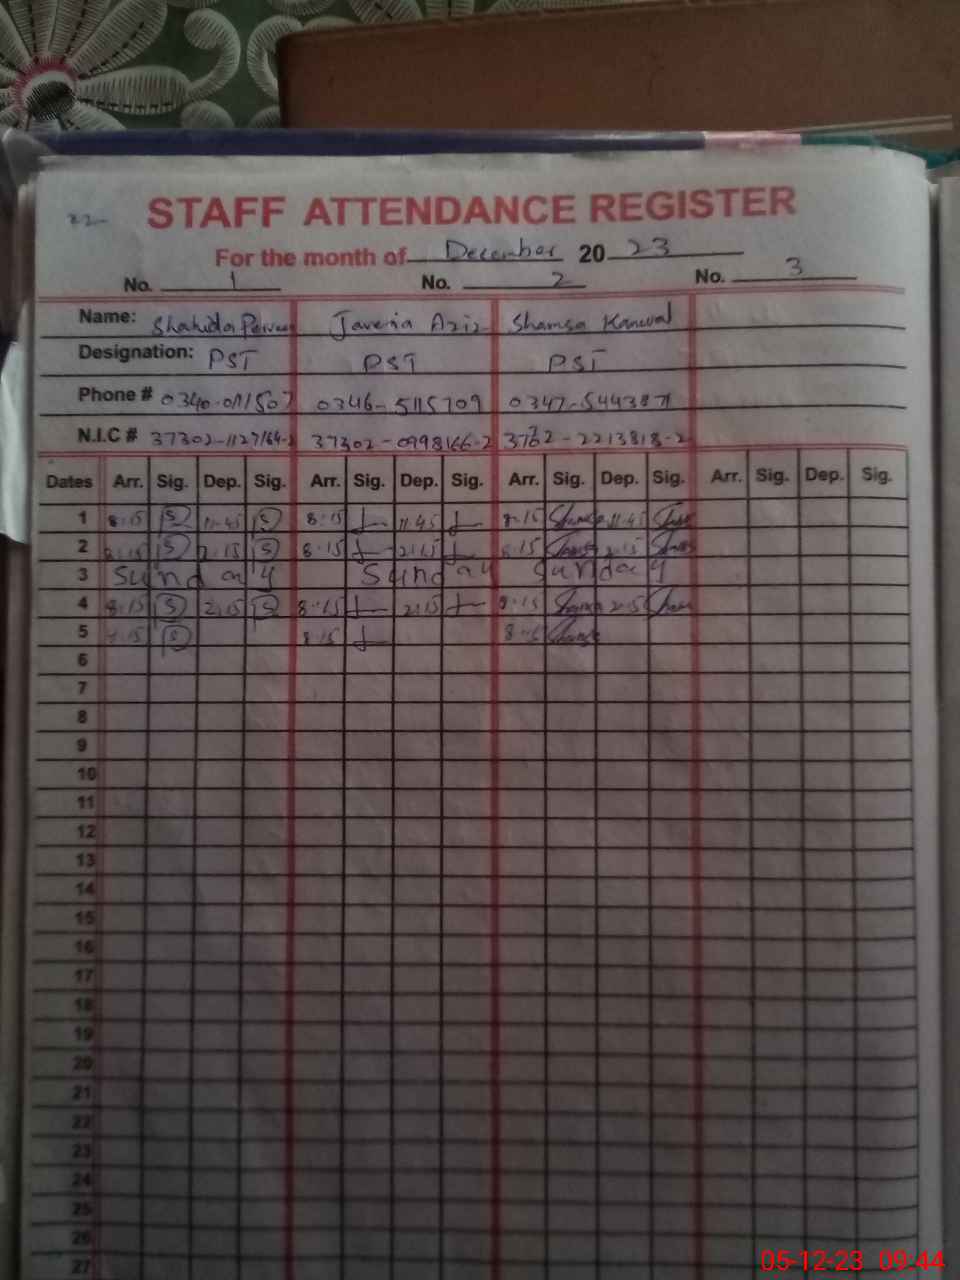 22
STAFF ATTENDANCE REGISTER
For the month of December 20 23
No. 1 No. 2 No. 3
Name: Shahida Parveen Javeria Aziz Shamsa Kanwal
Designation: PST PST PST
Phone # 0346-5115709
N.I.C # 37302-0998166-2
Dates Arr. Sig. Dep. Sig. Arr. Sig. Dep. Sig. Arr. Sig. Dep. Sig. Arr. Sig. Dep. Sig.
1 8:15 S 11:45 S 8:15 11:45 8:15 Shamsa 11:45
2 8:15 S 2:15 S 8:15 2:15 8:15 Shamsa 2:15
3 Sunday Sunday Sunday
4 8:15 S 2:15 S 8:15 2:15 8:15 Shamsa 2:15
5 8:15 S 8:15 8:15 Shamsa
6
7
8
9
10
11
12
13
14
15
16
17
18
19
20
21
22
23
24
25
26
27
05-12-23 09:44